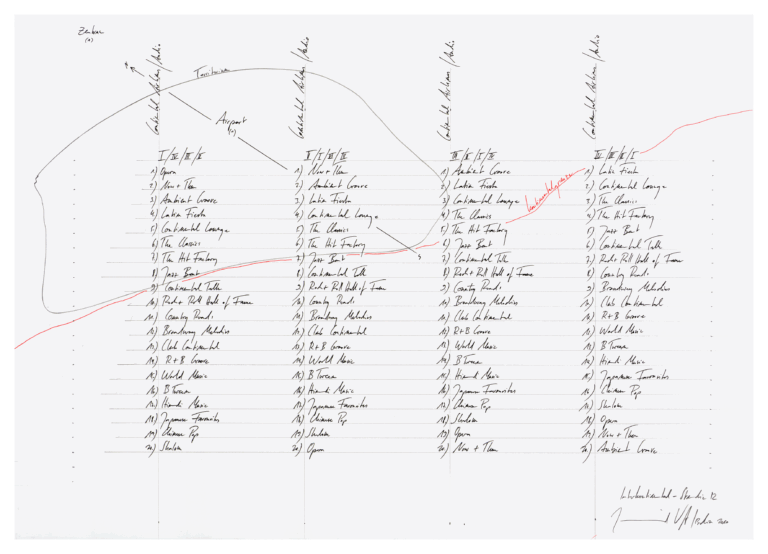 Territorium
Airport
Continental Airlines / Audio
Continental Airlines / Audio
Continental Airlines / Audio
Continental Airlines / Audio
1) Opera
2) Now + Then
3) Ambient Groove
4) Latin Fiesta
5) Continental Lounge
6) The Classics
7) The Hit Factory
8) Jazz Beat
9) Continental Talk
10) Rock + Roll Hall of Fame
11) Country Roads
12) Broadway Melodies
13) Club Continental
14) R + B Groove
15) World Music
16) B Tween
17) Hindi Music
18) Japanese Favorites
19) Chinese Pop
20) Shalom
1) Now + Then
2) Ambient Groove
3) Latin Fiesta
4) Continental Lounge
5) The Classics
6) The Hit Factory
7) Jazz Beat
8) Continental Talk
9) Rock + Roll Hall of Fame
10) Country Roads
11) Broadway Melodies
12) Club Continental
13) R + B Groove
14) World Music
15) B Tween
16) Hindi Music
17) Japanese Favorites
18) Chinese Pop
19) Shalom
20) Opera
1) Ambient Groove
2) Latin Fiesta
3) Continental Lounge
4) The Classics
5) The Hit Factory
6) Jazz Beat
7) Continental Talk
8) Rock + Roll Hall of Fame
9) Country Roads
10) Broadway Melodies
11) Club Continental
12) R + B Groove
13) World Music
14) B Tween
15) Hindi Music
16) Japanese Favorites
17) Chinese Pop
18) Shalom
19) Opera
20) Now + Then
1) Latin Fiesta
2) Continental Lounge
3) The Classics
4) The Hit Factory
5) Jazz Beat
6) Continental Talk
7) Rock + Roll Hall of Fame
8) Country Roads
9) Broadway Melodies
10) Club Continental
11) R + B Groove
12) World Music
13) B Tween
14) Hindi Music
15) Japanese Favorites
16) Chinese Pop
17) Shalom
18) Opera
19) Now + Then
20) Ambient Groove